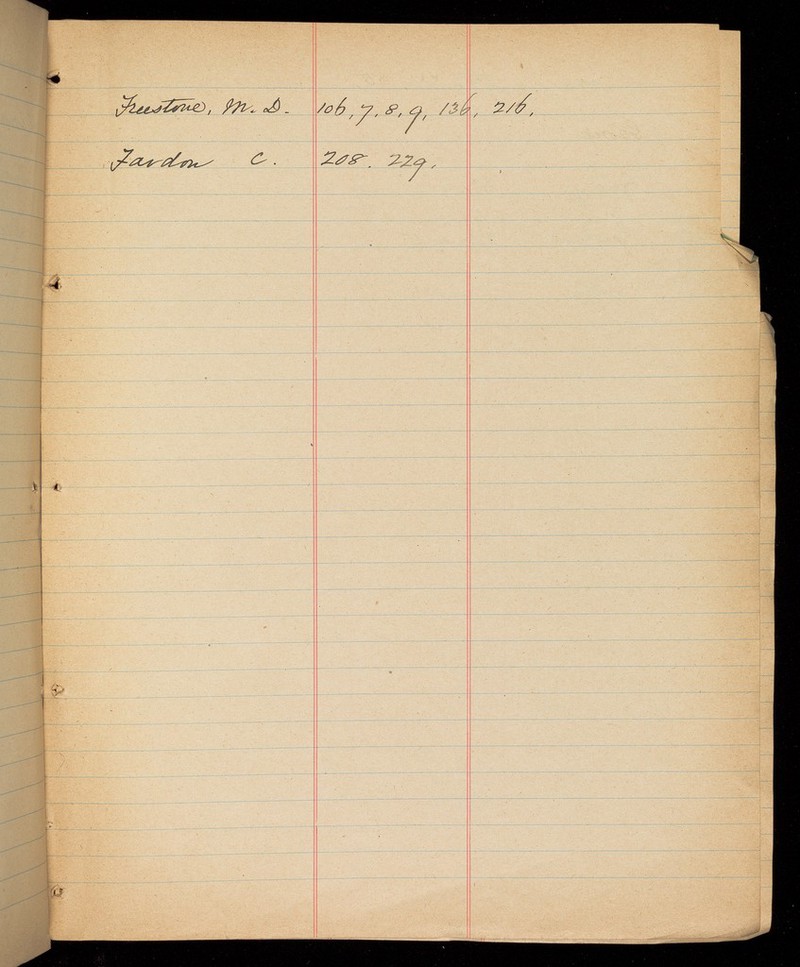 Freestone, M. D. 106, 7, 8, 9, 136, 216.
Fardon C. 208. 229.